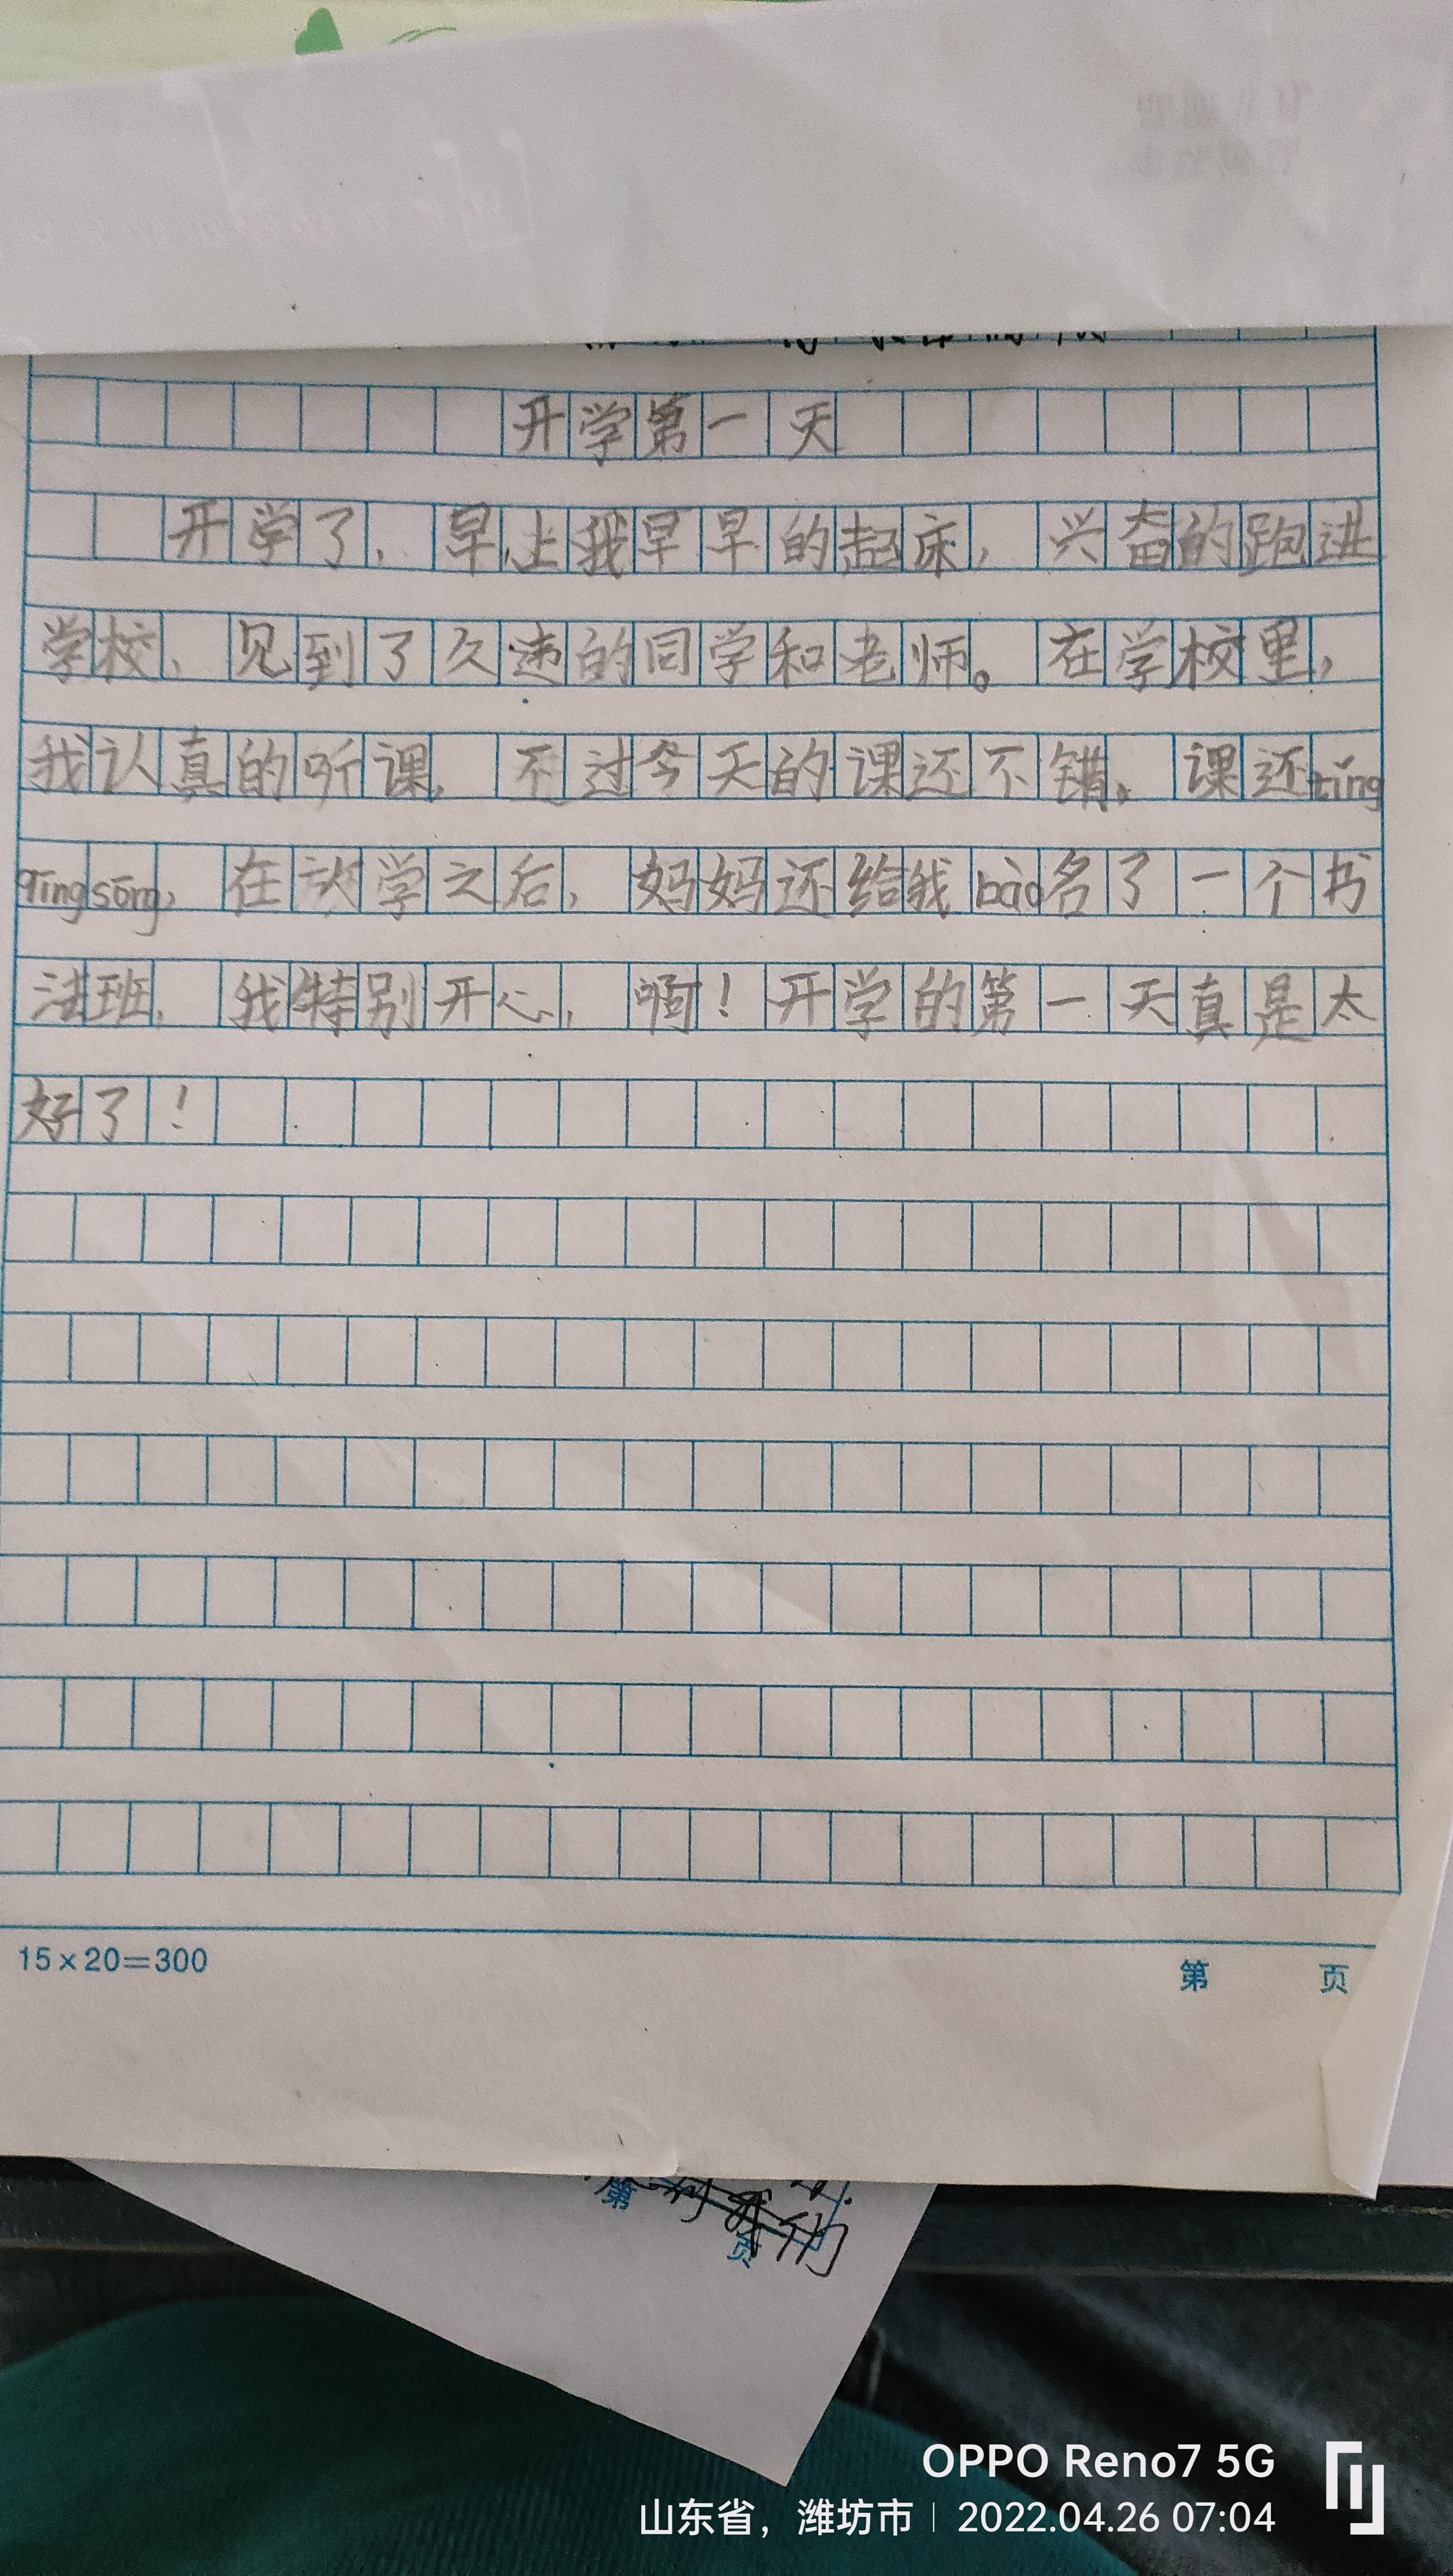 开学第一天
开学了，早上我早早的起床，兴奋的跑进
学校，见到了久违的同学和老师。在学校里，
我认真的听课，不过今天的课还不错，课还tǐng
qīngsōng，在放学之后，妈妈还给我bào名了一个书
法班，我特别开心，啊！开学的第一天真是太
好了！
15×20=300
第 页
第
页
们
OPPO Reno7 5G
山东省，潍坊市 | 2022.04.26 07:04